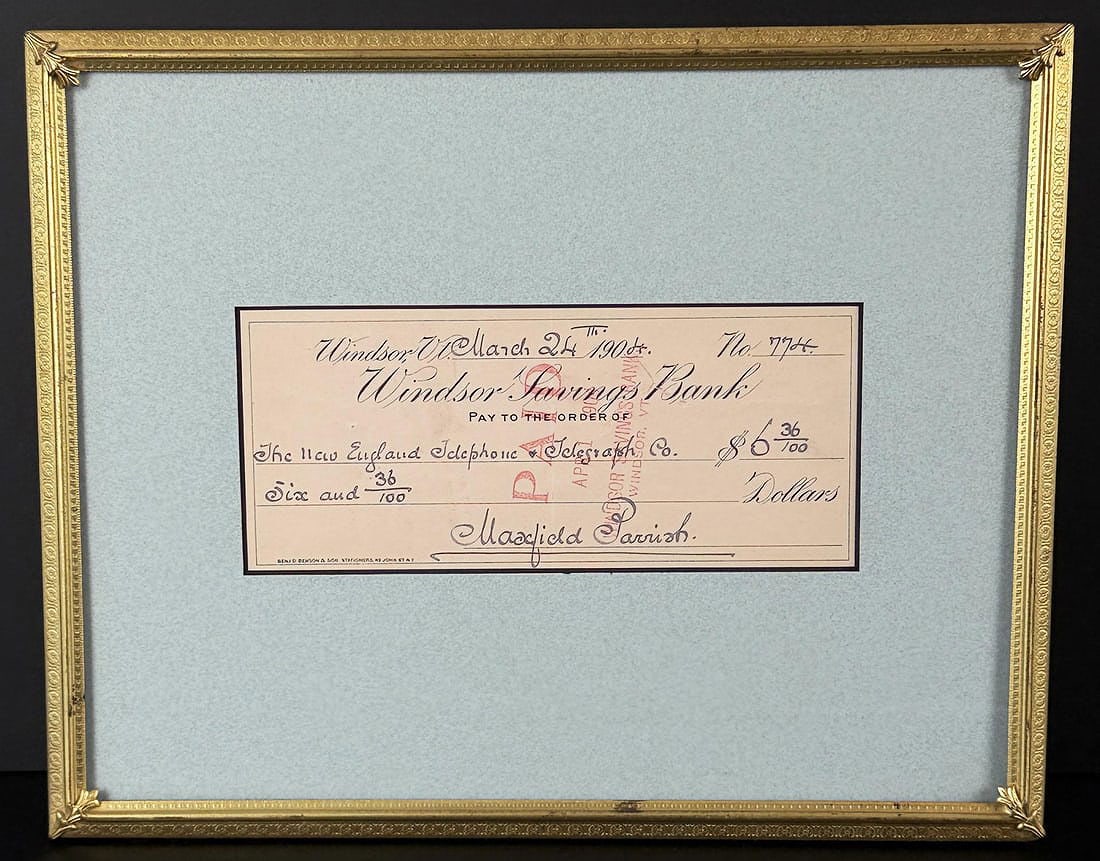 Windsor, Vt. March 24 TH. 1904. No. 774.
Windsor Savings Bank
PAY TO THE ORDER OF
The New England Telephone & Telegraph Co. $ 6 36/100
Six and 36/100 Dollars
Maxfield Parrish.
BENJ D. BENSON & SON, STATIONERS, JOHN ST. N.Y.
PAID
APR 1 190
WINDSOR SAVINGS BANK
WINDSOR, VT.